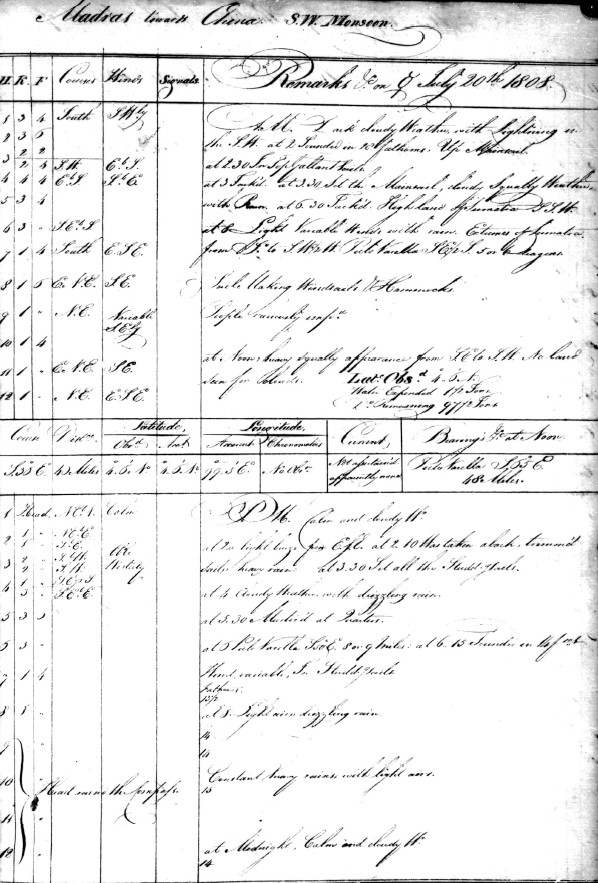 Madras towards China. S.W. Monsoon.
H. K. F Courses Winds Signals Remarks &c on ☿ July 20th 1808
1 3 4 South SWly
A.M. Dark cloudy Weather with lightning in
2 3 6 the S.W. at 2 Sounded in 20 fathoms. Up Mainsail.
3 2 2
2 4 S.W. EbS. at 2.30 In Top Gallant Sails
4 4 4 EbS SbE at 3 Tack'd. at 3.30 Set the Mainsail, cloudy Squally Weather
5 3 4 with Rain. at 6.30 Tack'd. High land of Sumatra S.S.W.
6 3 " SEbS at 8 Light Variable Winds with rain. Extremes of Sumatra
7 1 4 South E.S.E. from to S.W W Pulo Varella 5 or 6 leagues
8 1 6 E.N.E S.E. Sails Making Windsails & Hammocks
9 1 " N.E. Variable People variously emp'd
S.Ely
10 1 4
11 1 " E.N.E S.E. at Noon heavy squally appearance from S.E. to S.W. No land
12 1 " N.E. E.S.E. seen for clouds. Lat: Obs'd 4.5 N.
Water Expended 1 1/2 Tons
Do Remaining 97 1/2 Tons
Course Dist. Latitude, Longitude, Current Bearing's &c at Noon.
Obs'd Acct Account Chronometer
S.55 E. 45 Miles 4..5. No 4.5. No 99.5 Eo. No Obsn. Not ascertain'd apparently none Pulo Varella S.55 E
48 Miles.
1 Head N.E. Calm P.M. Calm and cloudy Wr
2 1 " N.E.
1 " S.E. at 2 a light breeze from at 2.10 Was taken aback trimm'd
3 1 " S.W. Westerly sails heavy rain at 3.30 Set all the Studd'g Sails
2 " S.W.
4 1 " at 4 Cloudy Weather with drizzling rain.
3 " S.E.
5 3 3 at 5.30 Muster'd at Quarters.
6 3 " at 6 Pulo Varella S50E. 8 or 9 Miles: at 6.15 Sounded in 14
7 1 4 Wind variable, In Studd'g Sails
fathoms
13 1/2
8 3 " at 8. Light airs drizzling rain
14
9 14
10 " Head round the Compass Constant heavy rains with light airs.
15
11 "
12 " at Midnight. Calm and cloudy Wr
14